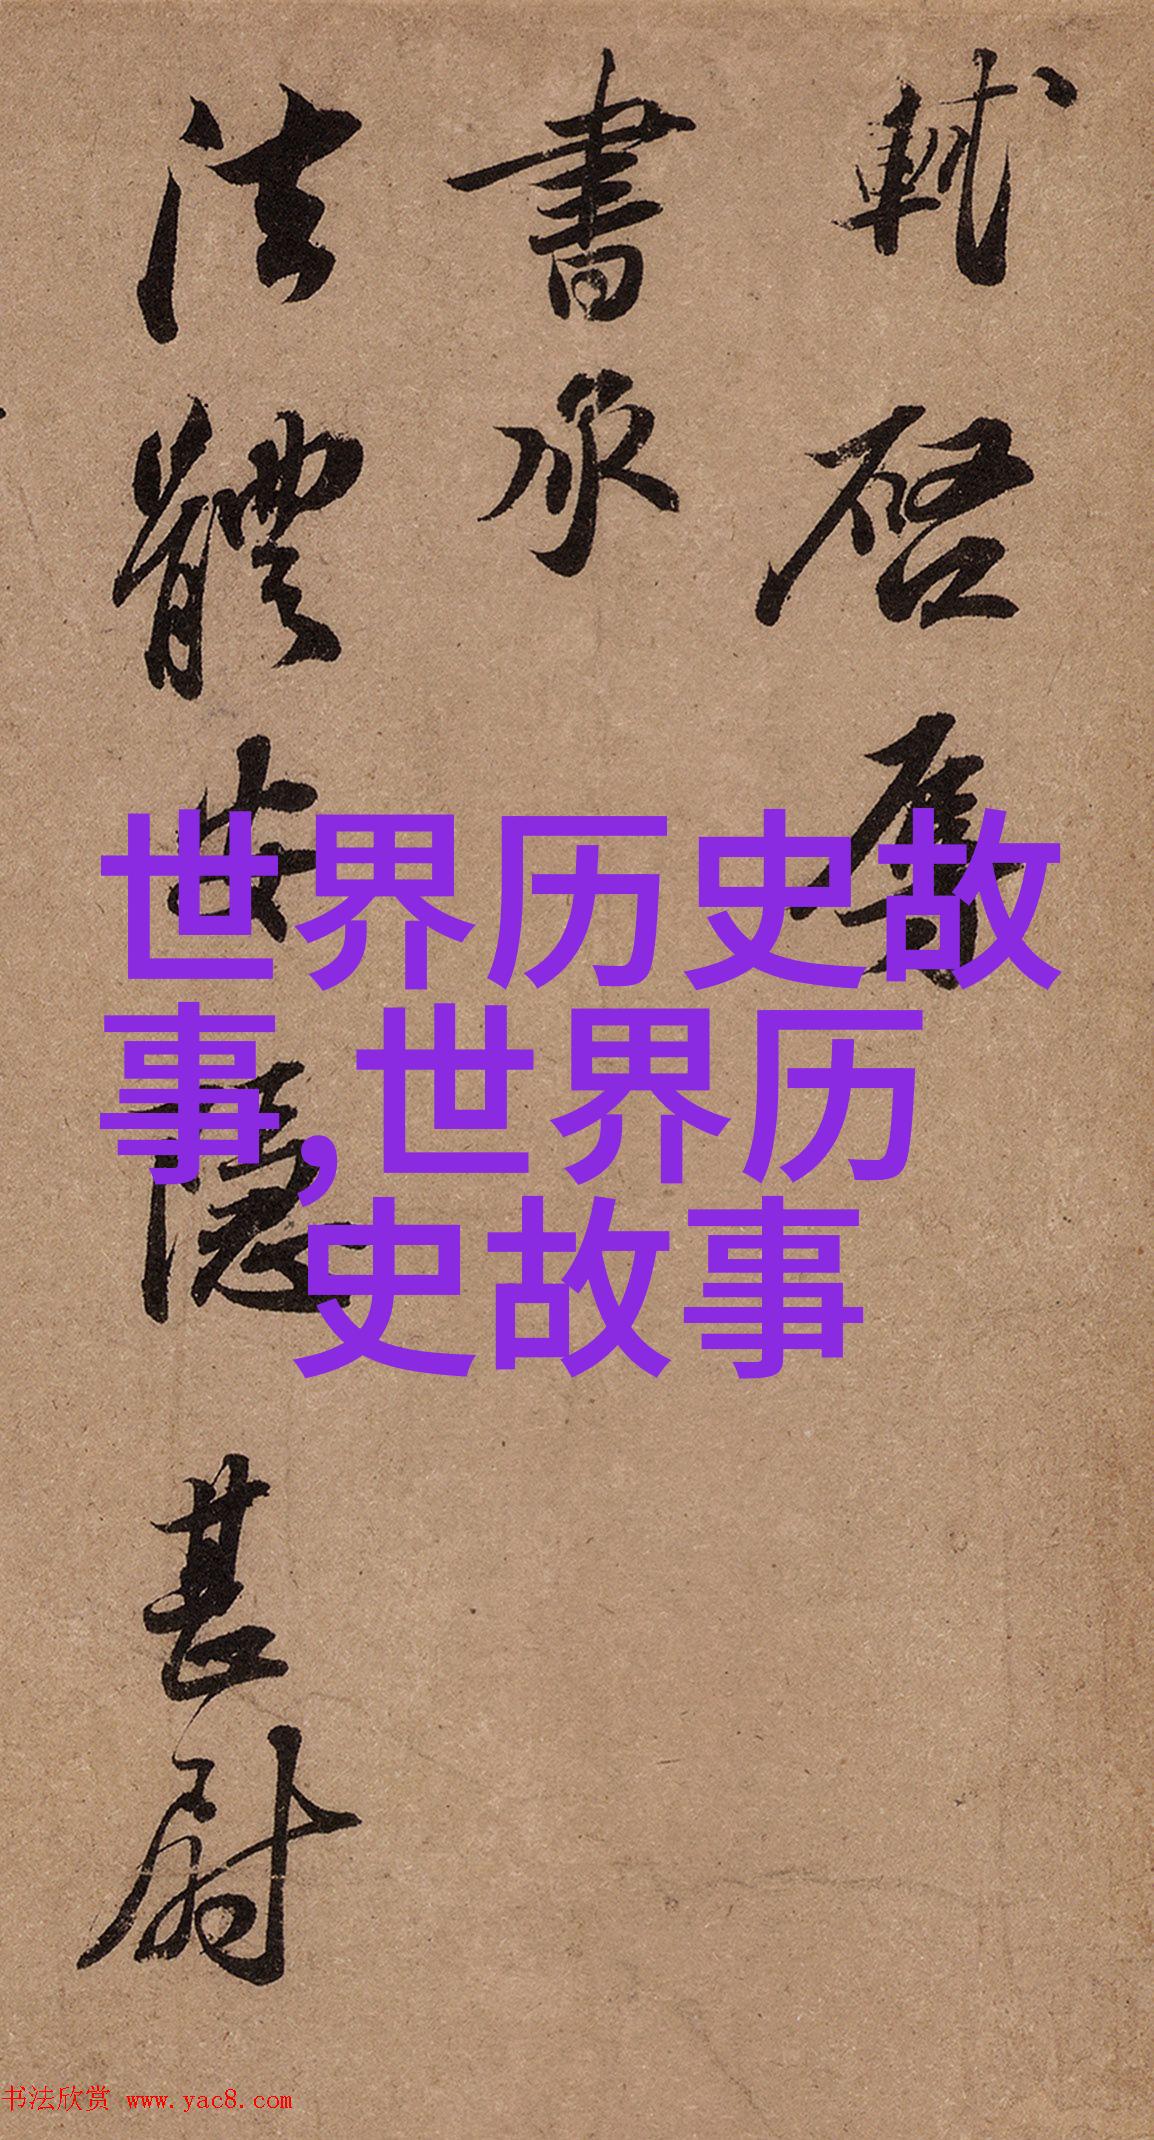 軾啓辱
書承
法體安隱甚慰
世界历史故
事,世界历
史故事
书法欣赏 www.yac8.com